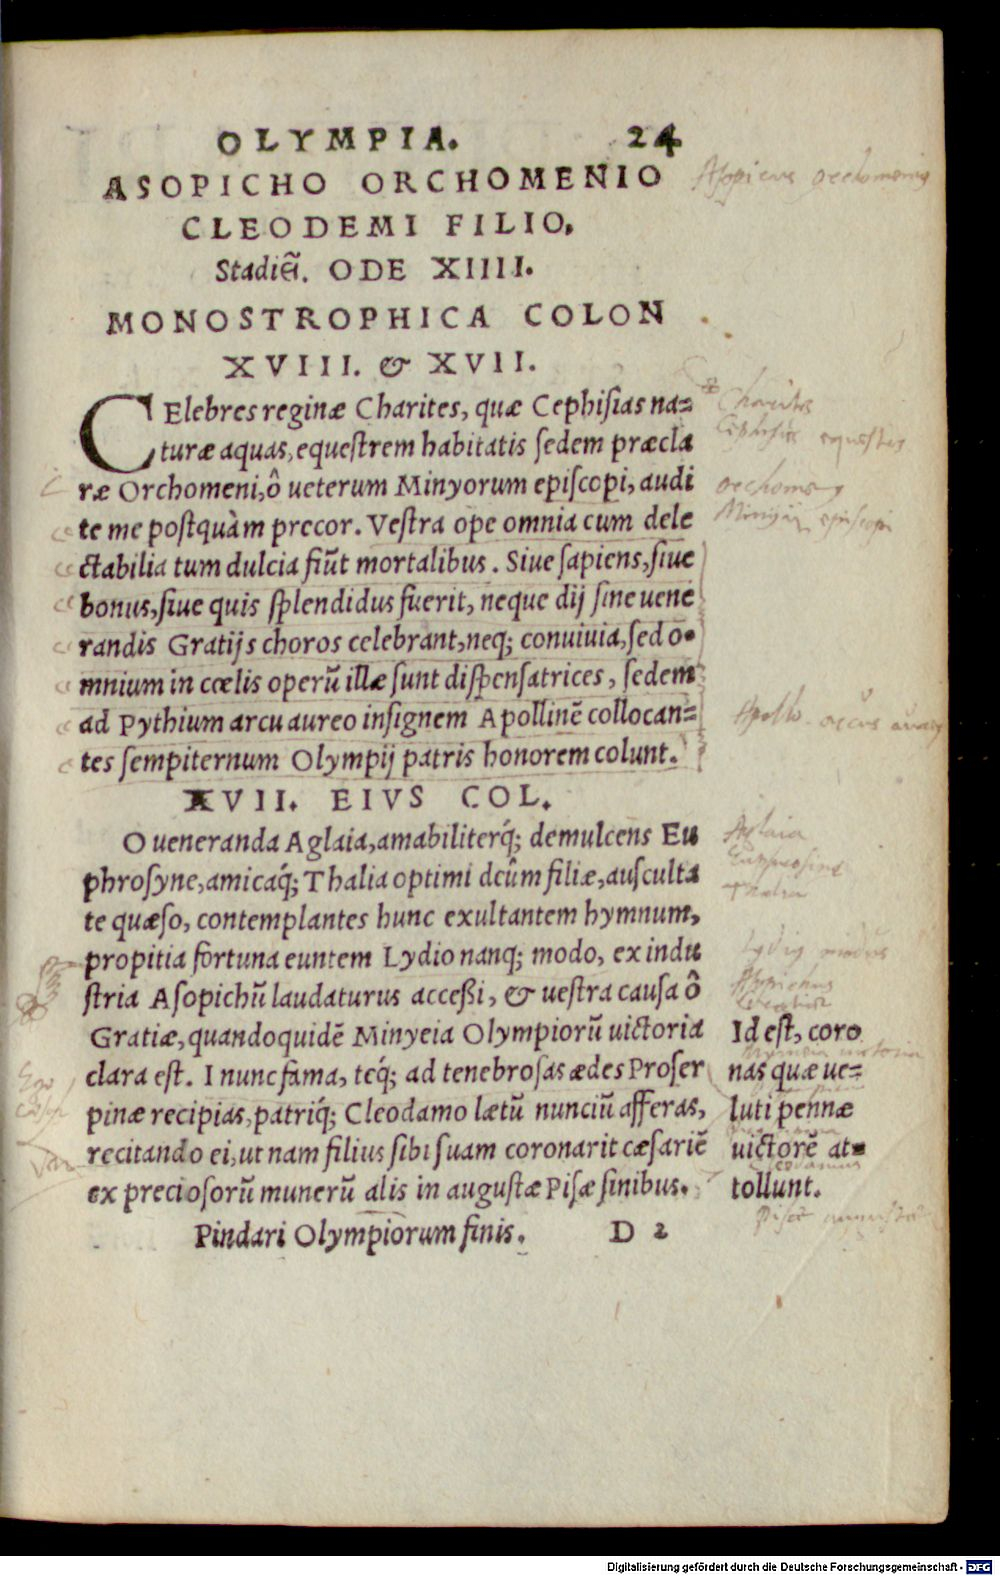 OLYMPIA. 24
ASOPICHO ORCHOMENIO
CLEODEMI FILIO.
Stadiẽi. ODE XIIII.
MONOSTROPHICA COLON
XVIII. & XVII.
CElebres reginæ Charites, quæ Cephisias na=
turæ aquas, equeſtrem habitatis ſedem præcla
ræ Orchomeni, ô ueterum Minyorum epiſcopi, audi
te me poſtquàm precor. Veſtra ope omnia cum dele
ctabilia tum dulcia fiũt mortalibus. Siue ſapiens, ſiue
bonus, ſiue quis ſplendidus fuerit, neque dij ſine uene
randis Gratijs choros celebrant, neq; conuiuia, ſed o•
mnium in cœlis operũ illæ ſunt diſpenſatrices, ſedem
ad Pythium arcu aureo inſignem Apollinẽ collocan=
tes ſempiternum Olympij patris honorem colunt.
XVII. EIVS COL.
O ueneranda Aglaia, amabiliterq́; demulcens Eu
phroſyne, amicaq́; Thalia optimi deûm filiæ, auſculta
te quæſo, contemplantes hunc exultantem hymnum,
propitia fortuna euntem Lydio nanq; modo, ex indu
ſtria Aſopichũ laudaturus acceßi, & ueſtra cauſa ô
Gratiæ, quandoquidẽ Minyeia Olympiorũ uictoria
clara eſt. I nunc fama, teq́; ad tenebroſas ædes Proſer
pinæ recipias, patriq́; Cleodamo lætũ nunciũ afferas,
recitando ei, ut nam filius ſibi ſuam coronarit cæſariẽ
ex precioſorũ munerũ alis in auguſtæ Piſæ ſinibus.
Id eſt, coro
nas quæ ue=
luti pennæ
uictorẽ at=
tollunt.
Pindari Olympiorum finis. D 2
Charites
Aglaia
Digitalisierung gefördert durch die Deutsche Forschungsgemeinschaft - DFG